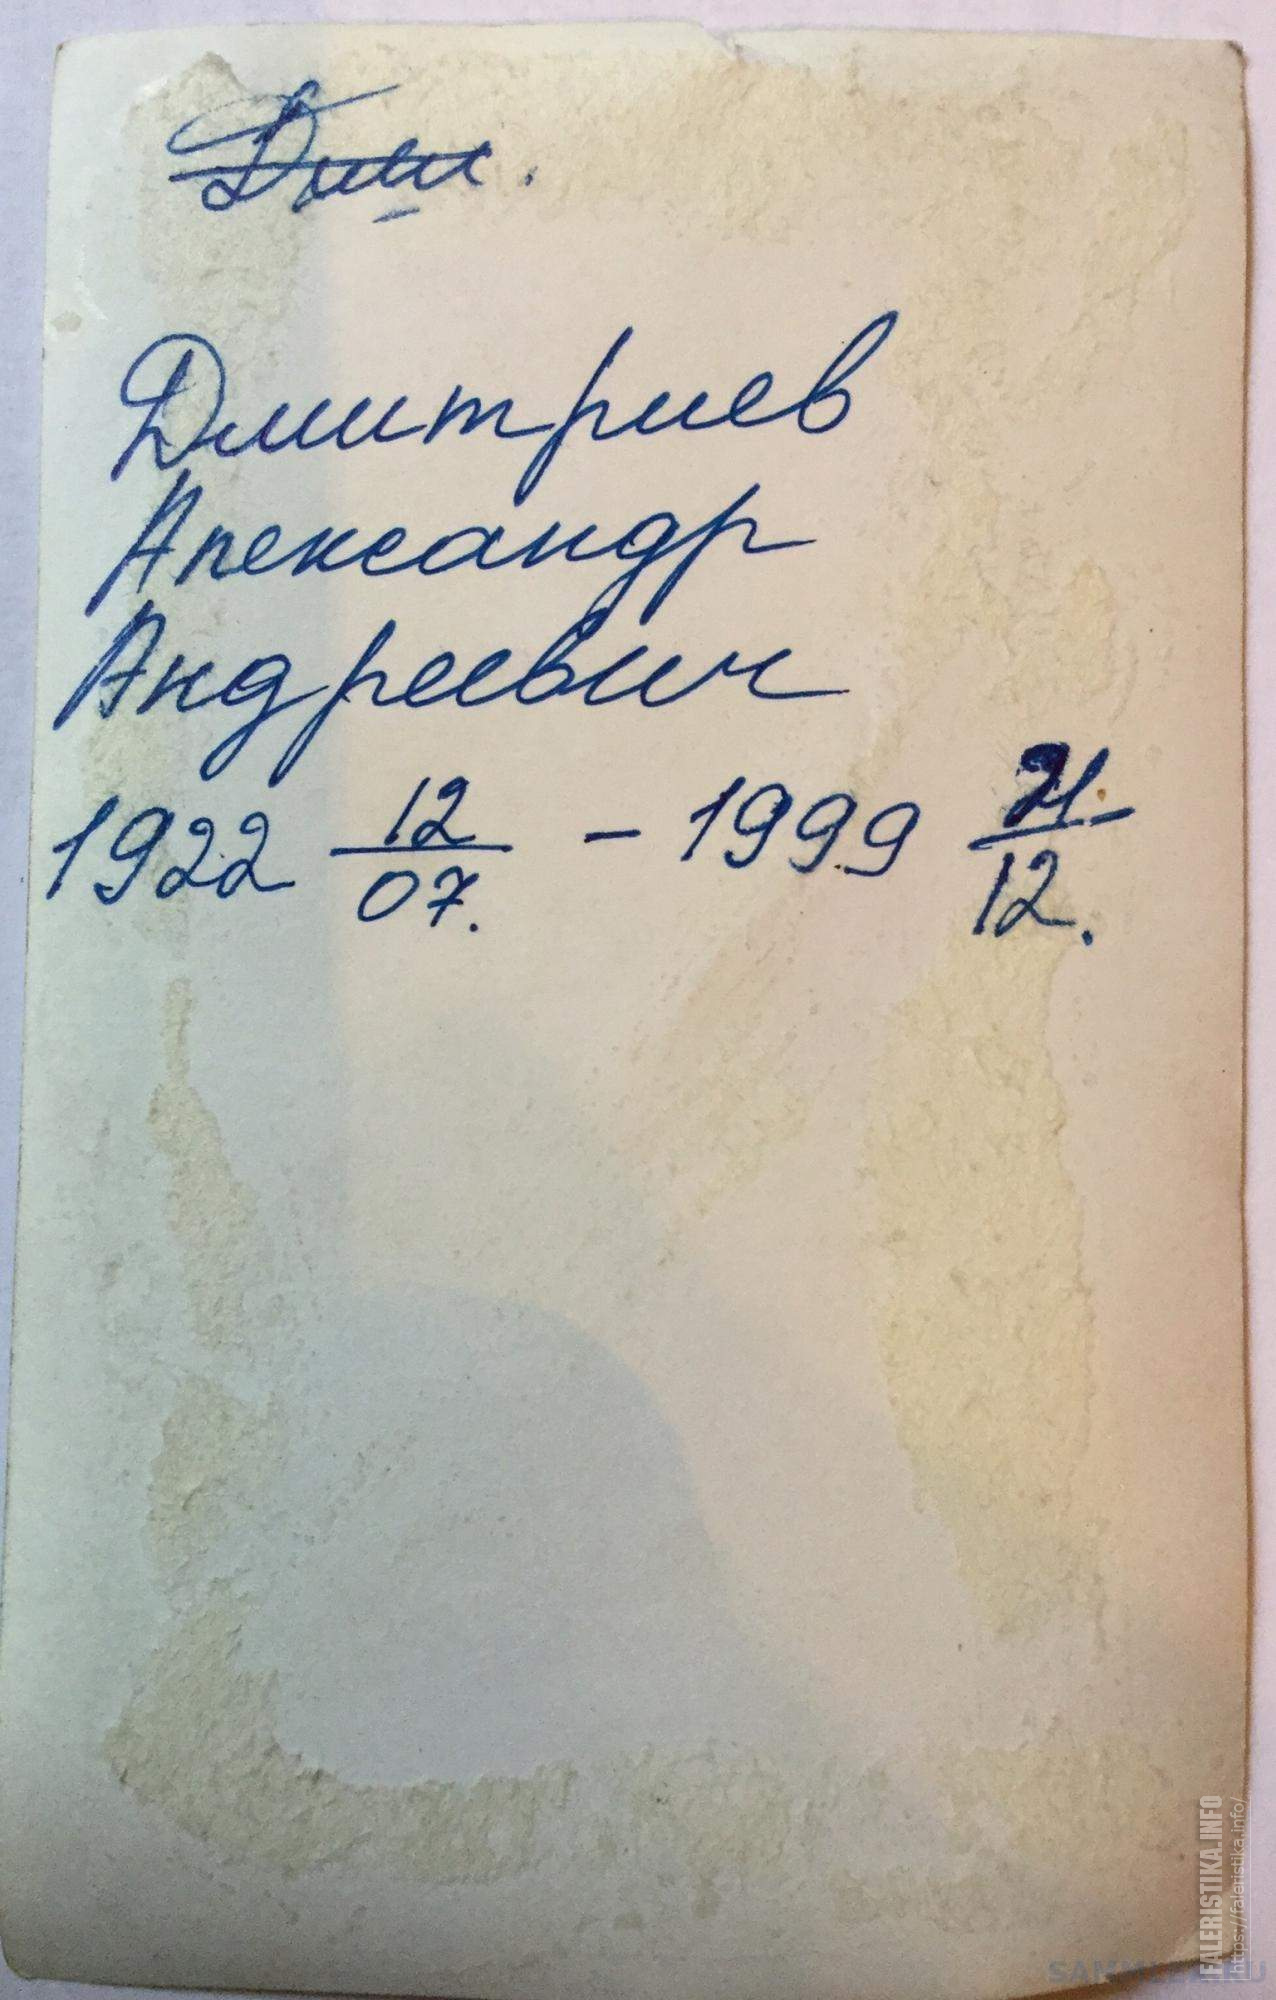 Дмитриев
Александр
Андреевич
1922 12/07. – 1999 21/12.
FALERISTIKA.INFO
https://faleristika.info/
SAMMLER.RU